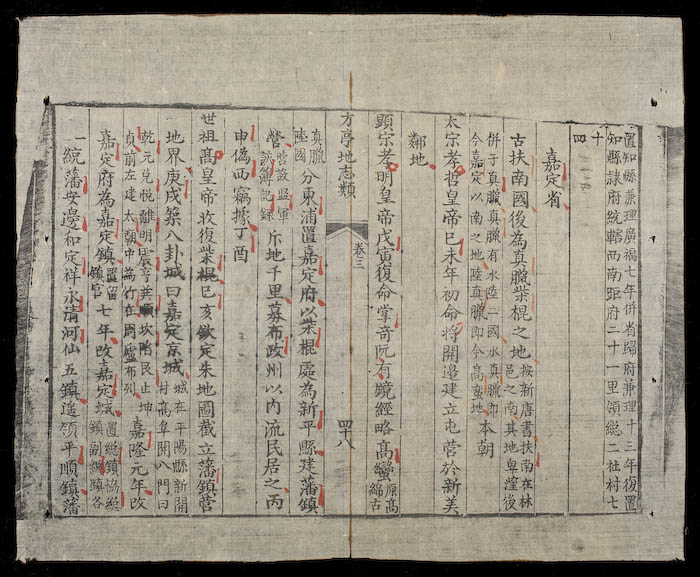 置知縣兼理廣福七年併省歸府兼理十三年復置
知縣隸府統轄西南距府二十一里領總二社村七
十四
嘉定省
古扶南國後為真臘柴棍之地按新唐書扶南在林邑之南其地卑漥後
併于真臘真臘有水陸二國水真臘即今嘉定以南之地陸真臘即今高蠻地本朝
太宗孝哲皇帝己未年初命將開邊建立屯營於新美
鄰地
顯宗孝明皇帝戊寅復命掌奇阮有鏡經略高蠻原高綿古
方亭地志類 卷三 四十八
真臘陸國分東浦置嘉定府以柴棍處為新平縣建藩鎮
營營設監軍該簿記錄斥地千里募布政州以內流民居之丙
申偽西竊據丁酉
世祖高皇帝收復柴棍己亥欽定朱地圖截立藩鎮營
地界庚戌築八卦城曰嘉定京城城在平陽縣新開村高阜開八門曰
乾元兌悅離明震亨巽順坎險艮止坤貞前左建太廟中為行在周廬布列嘉隆元年改
嘉定府為嘉定鎮置留鎮官七年改嘉定城置總鎮協總鎮副總鎮各
一統藩安邊和定祥永清河仙五鎮遥領平順鎮藩